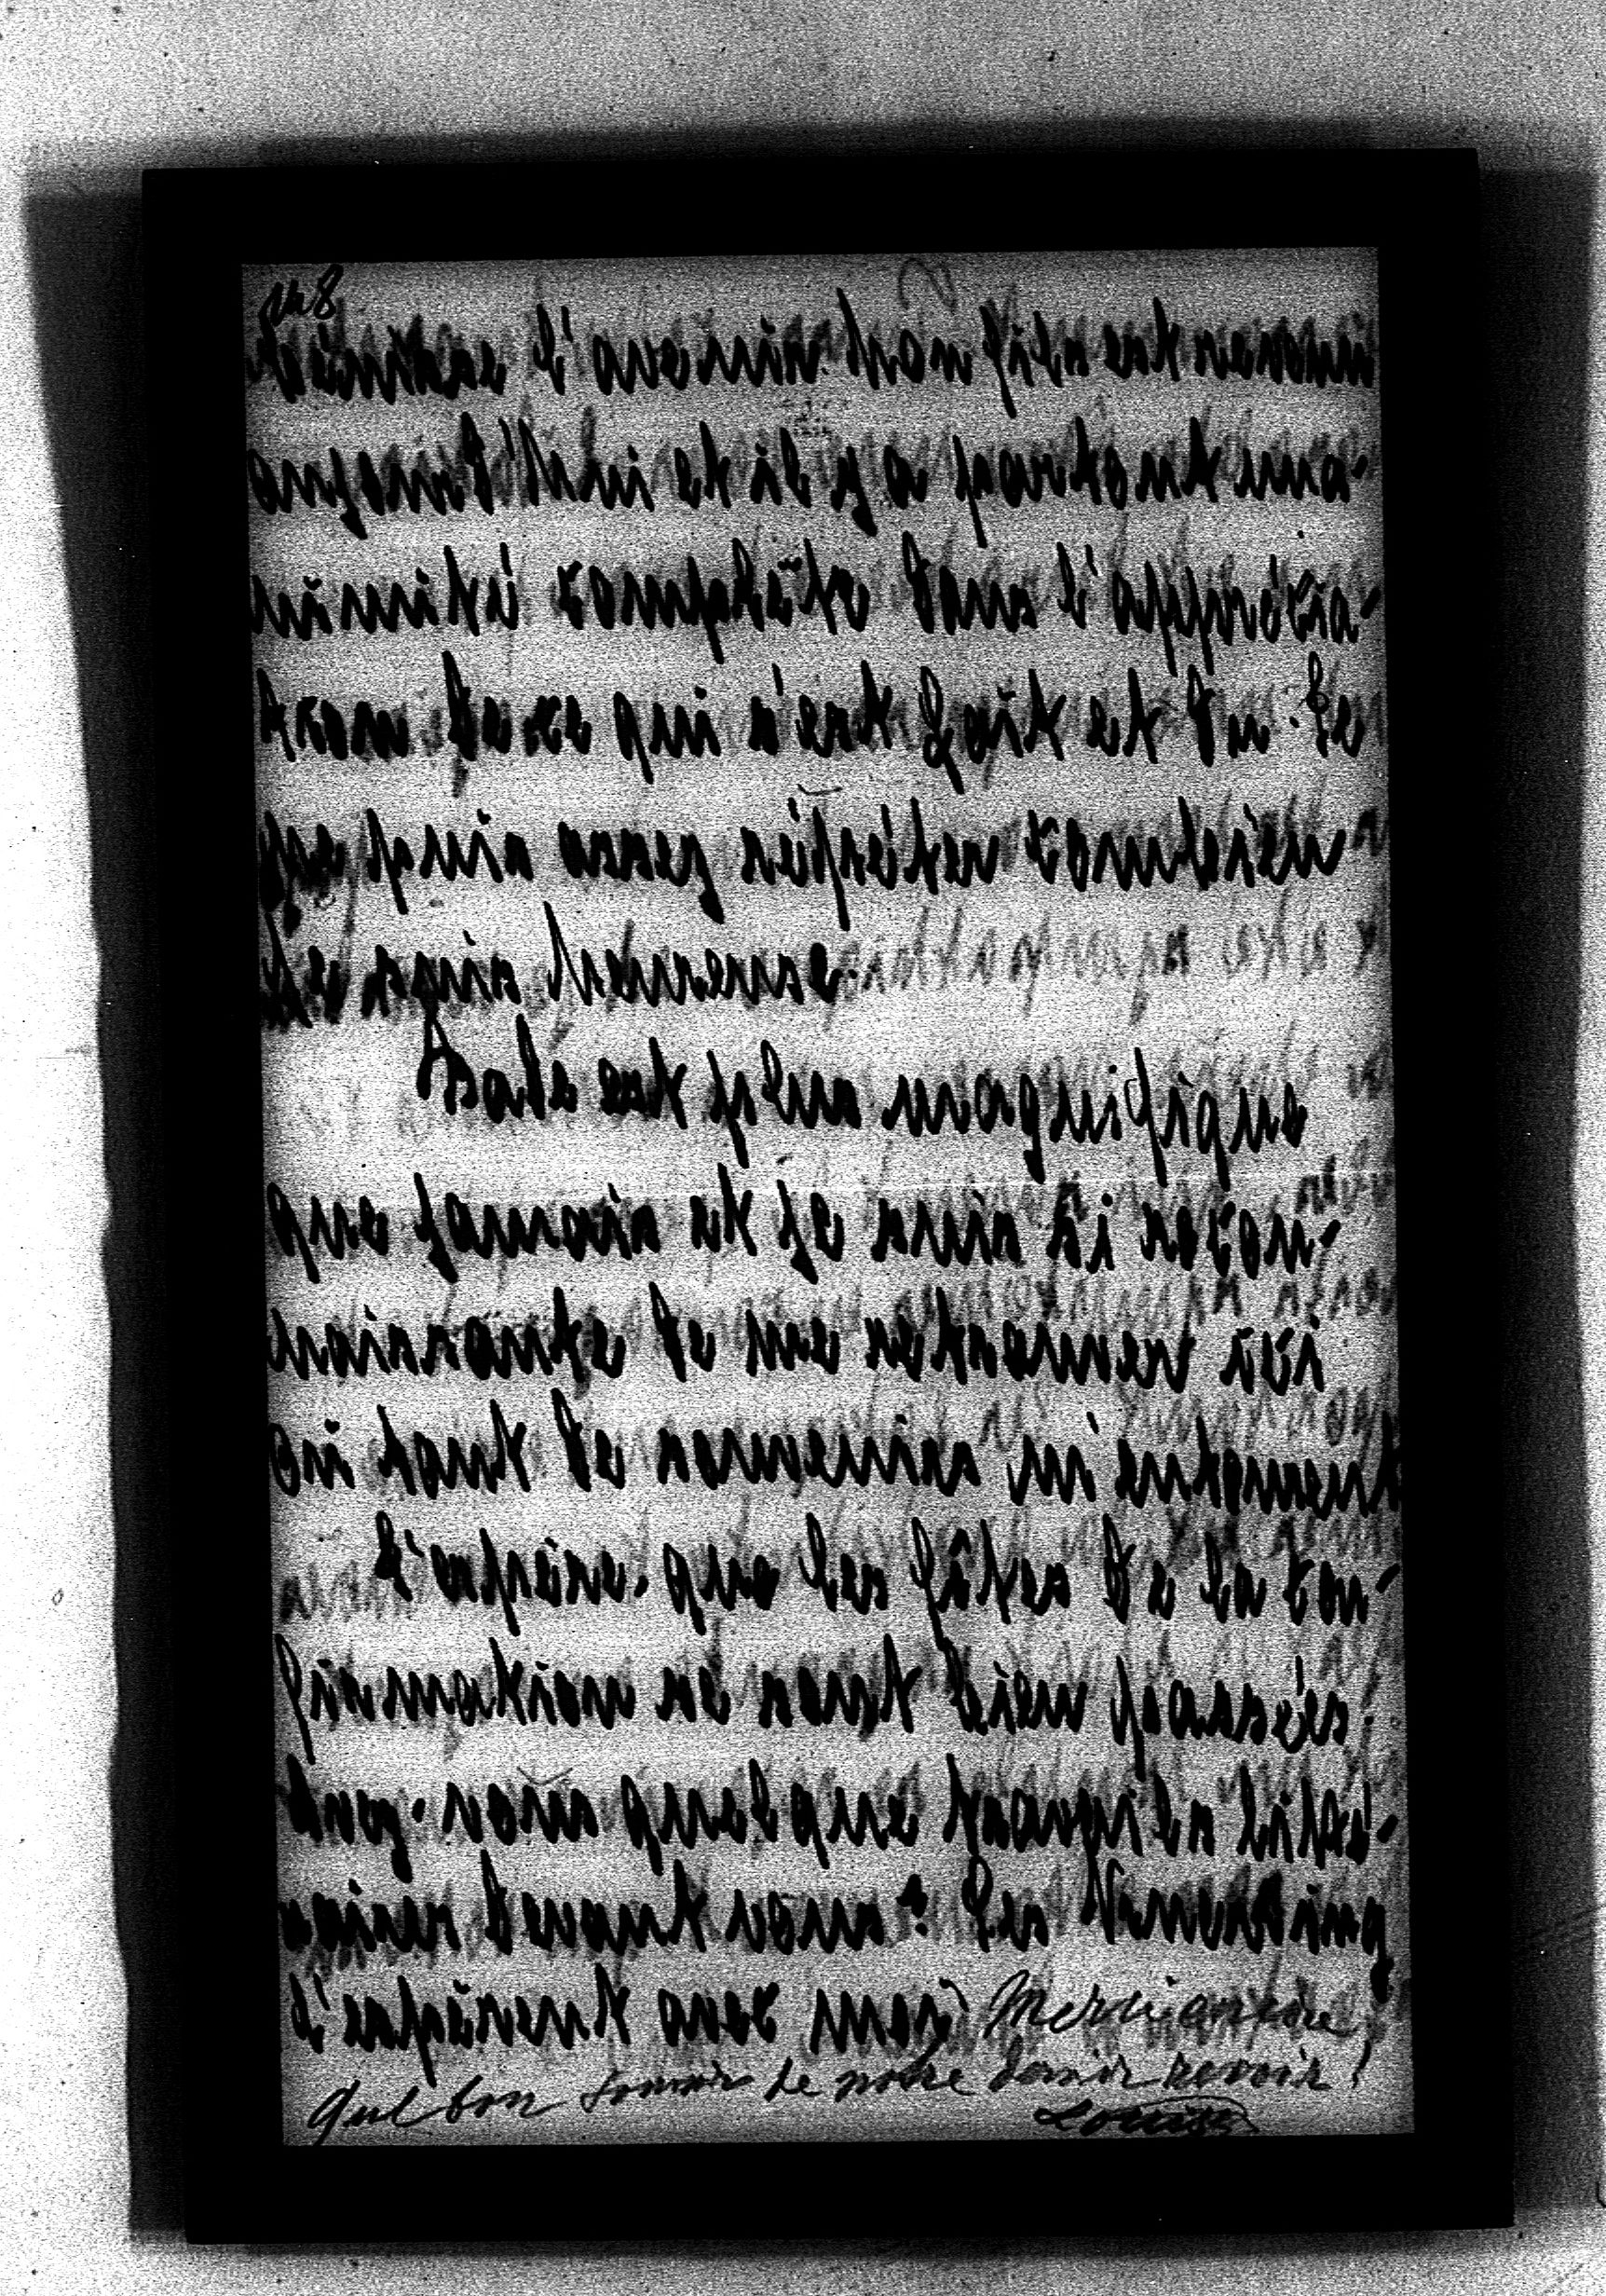 l'avenir. Mon fils est revenu
aujourd'hui et il y a partout una-
nimité complète dans l'apprécia-
tion de ce qui s'est fait et dit. Je
ne puis assez répéter combien
je suis heureuse.
est plus magnifique
que jamais et je suis si recon-
naissante de me retrouver ici
où tant de souvenirs m'entourent
J'espère que les fêtes de la con-
firmation se sont bien passées.
Avez-vous quelque travail litté-
raire devant vous? Les
l'espèrent avec moi Merci encore
Quel bon souvenir de notre dernier revoir!
Louise